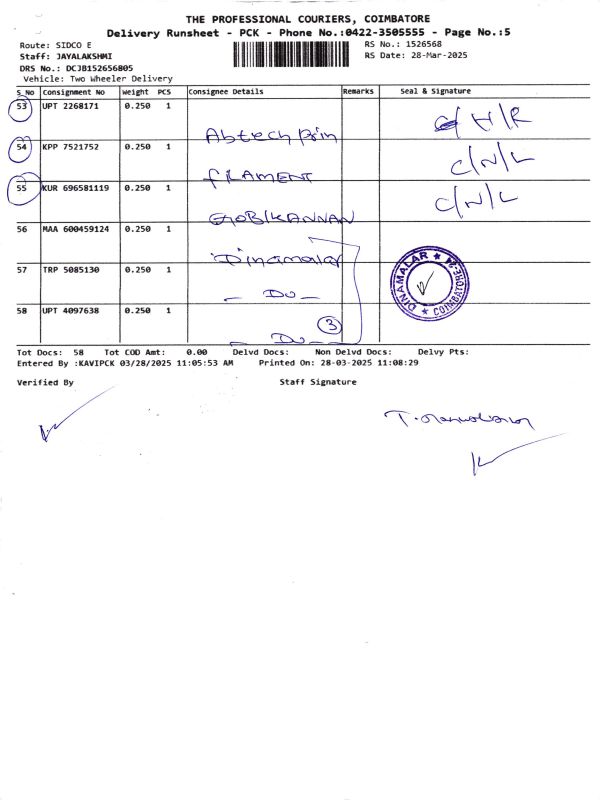 THE PROFESSIONAL COURIERS, COIMBATORE
Delivery Runsheet - PCK - Phone No.:0422-3505555 - Page No.:5
Route: SIDCO E
RS No.: 1526568
Staff: JAYALAKSHMI
RS Date: 28-Mar-2025
DRS No.: DCJB152656805
Vehicle: Two Wheeler Delivery
S_No Consignment No Weight PCS Consignee Details Remarks Seal & Signature
53 UPT 2268171 0.250 1
Abtech Prin
54 KPP 7521752 0.250 1
C/N/L
FILAMENT
55 KUR 696581119 0.250 1
C/N/L
GOBIKANNAN
56 MAA 600459124 0.250 1
Dinamalar
DINAMALAR ★ COIMBATORE-24 ★
57 TRP 5085130 0.250 1
- Do -
58 UPT 4097638 0.250 1
3
- Do -
Tot Docs: 58 Tot COD Amt: 0.00 Delvd Docs: Non Delvd Docs: Delvy Pts:
Entered By :KAVIPCK 03/28/2025 11:05:53 AM Printed On: 28-03-2025 11:08:29
Verified By Staff Signature